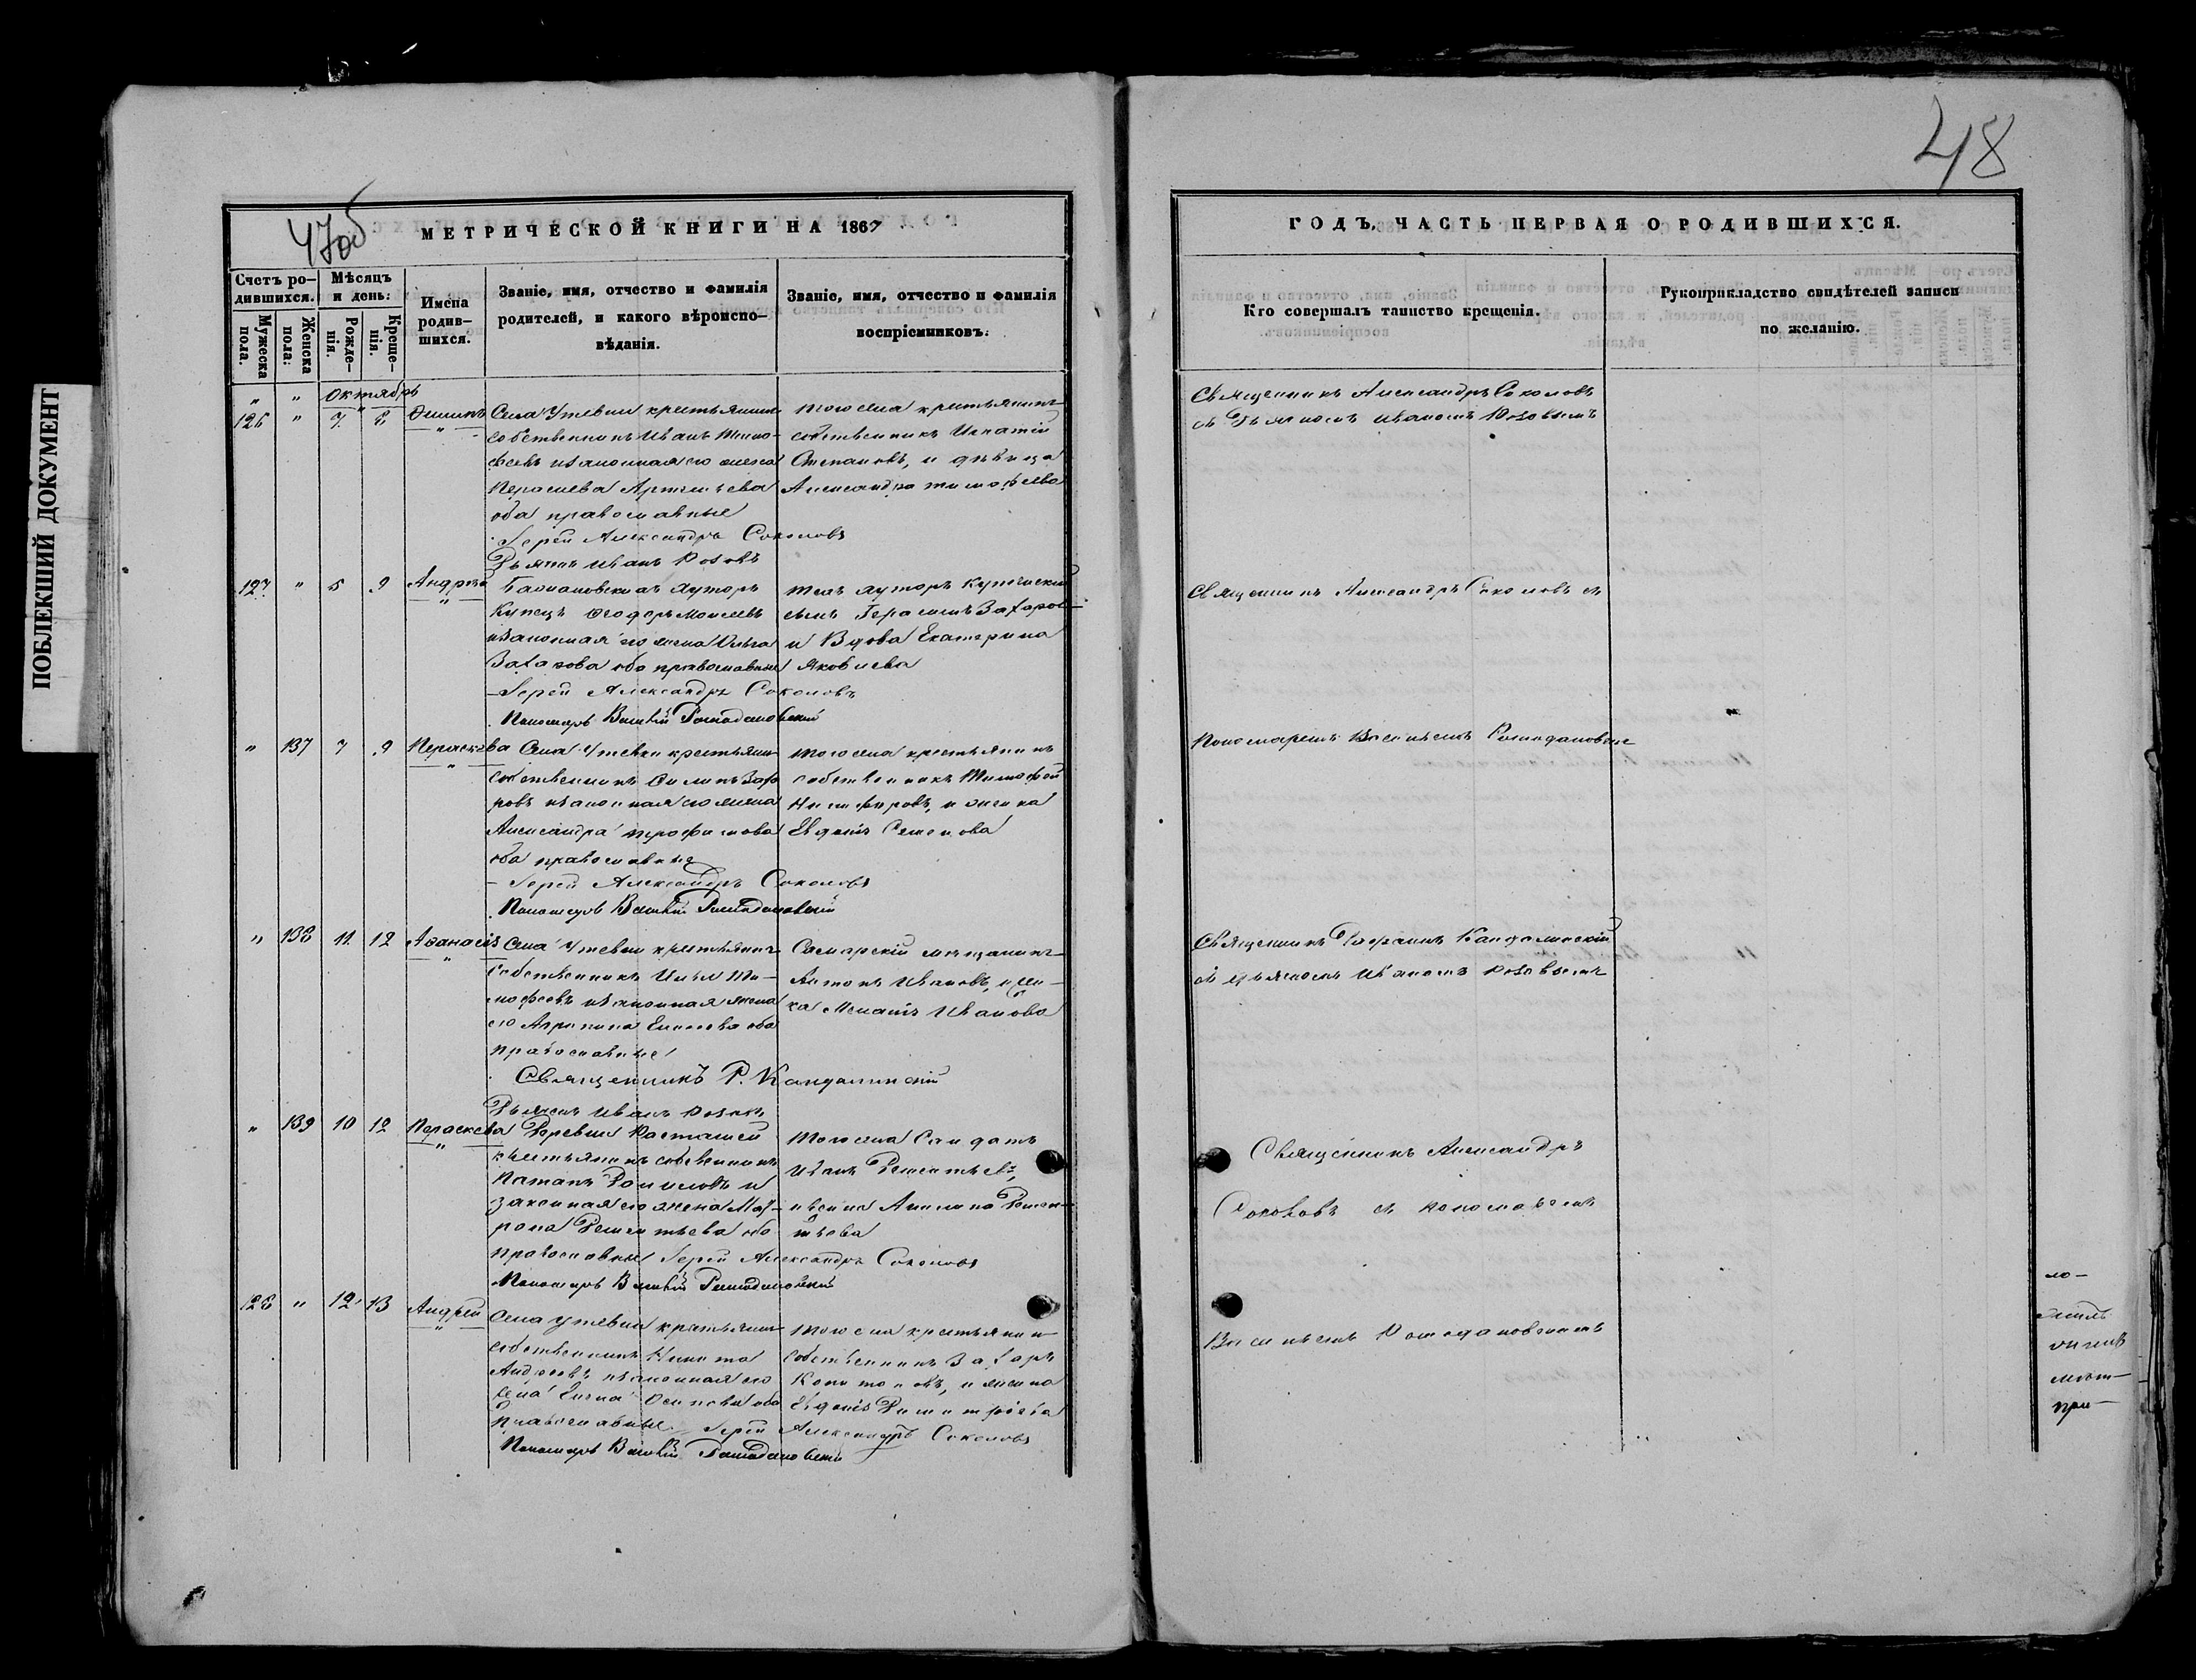 ПОБЛЕКШИЙ ДОКУМЕНТ
47об
МЕТРИЧЕСКОЙ КНИГИ НА 1867
Счетъ ро-
дившихся.
Мужеска
пола.
Женска
пола:
Мѣсяцъ
и день:
Рожде-
нія.
Креще-
нія.
Имена
родив-
шихся.
Званіе, имя, отчество и фамилія
родителей, и какого вѣроиспо-
вѣданія.
Званіе, имя, отчество и фамилія
воспріемниковъ:
" " Октябрь
126 " 7 8
Села Утевки крестьянинъ
собственникъ Иванъ Тимо-
феевъ изаконная его жена
Артемьева
оба православные
Іерей Александръ Соколовъ
Дьяконъ Иванъ Розовъ
того села крестьянинъ
собственникъ Игнатій
Степановъ, и дѣвица
Александра тимофеева
127 " 5 9 Андрей
хуторъ
Купецъ Ѳеодоръ Моисеевъ
изаконная его жена Ольга
Захарова оба православные
Іерей Александръ Соколовъ
Пономарь Василій Ромодановскій
тогъ хуторъ Купеческій
сынъ Герасимъ Захаровъ
и Вдова Екатерина
Яковлева
" 137 7 9 Параскева
Села Утевки крестьянинъ
собственникъ Филипъ Заха
ровъ изаконная его жена
Александра трофимова
оба православные
Іерей Александръ Соколовъ
Пономарь Василій Ромодановскій
того села крестьянинъ
собственникъ Тимофей
Никифоровъ, и жена
Евдокія Семенова
" 138 11 12 Аѳанасія
Села Утевки крестьянинъ
Собственникъ Илья Ти-
мофеевъ изаконная жена
его Агрипина оба
православные
Священникъ Р. Кандалинскій
Дьяконъ Иванъ Розовъ
Самарскій мещанинъ
Антонъ Ивановъ,
Меланія Иванова
" 139 10 12 Параскева
Деревни Расташей
крестьянинъ собственникъ
Потапъ Даниловъ и
законная его жена Мат-
рона Дементьева оба
православные Іерей Александръ Соколовъ
Пономарь Василій Ромодановскій
Того села Солдатъ
Иванъ Дементьевъ,
Акилина Демен-
тьева
128 " 12 13 Андрей
Села утевки крестьянинъ
собственникъ Никита
Андреевъ изаконная его
жена Елена Осипова оба
Православные Іерей Александръ Соколовъ
Пономарь Василій Ромодановскій
того села крестьянинъ
собственникъ Захаръ
Капитоновъ, и жена
Евдокія Димитріева
48
ГОДЪ, ЧАСТЬ ПЕРВАЯ О РОДИВШИХСЯ.
Кто совершалъ таинство крещенія.
Рукоприкладство свидѣтелей записи
по желанію.
Священникъ Александръ Соколовъ
съ Дьякономъ Иваномъ Розовымъ
Священникъ Александръ Соколовъ съ
Пономаремъ Василіемъ Ромодановскимъ
Священникъ Кандалинскій
съ дьякономъ Иваномъ Розовымъ
Священникъ Александръ
Соколовъ съ пономаремъ
Василіемъ Ромодановскимъ
ло-
при-